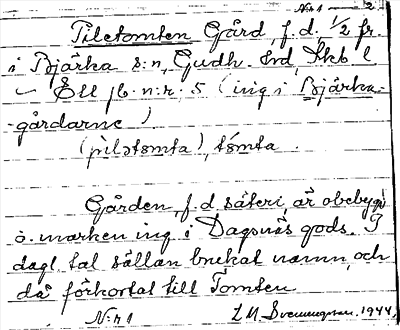 N:r 1 — 2.
Piletomten Gård, f.d. 1/2 fr.
i Bjärka s:n, Gudh. hd, Skb l
Ell jb. n:r. 5 (ing i Bjärka-
-gårdarne)
(piletomta), tomta.
Gården, f.d. säteri, är obebygd
o. marken ing. i Dagsnäs gods. I
dagl. tal sällan brukat namn, och
då förkortat till Tomten.
N:r 1 L M Svenungsson. 1944.